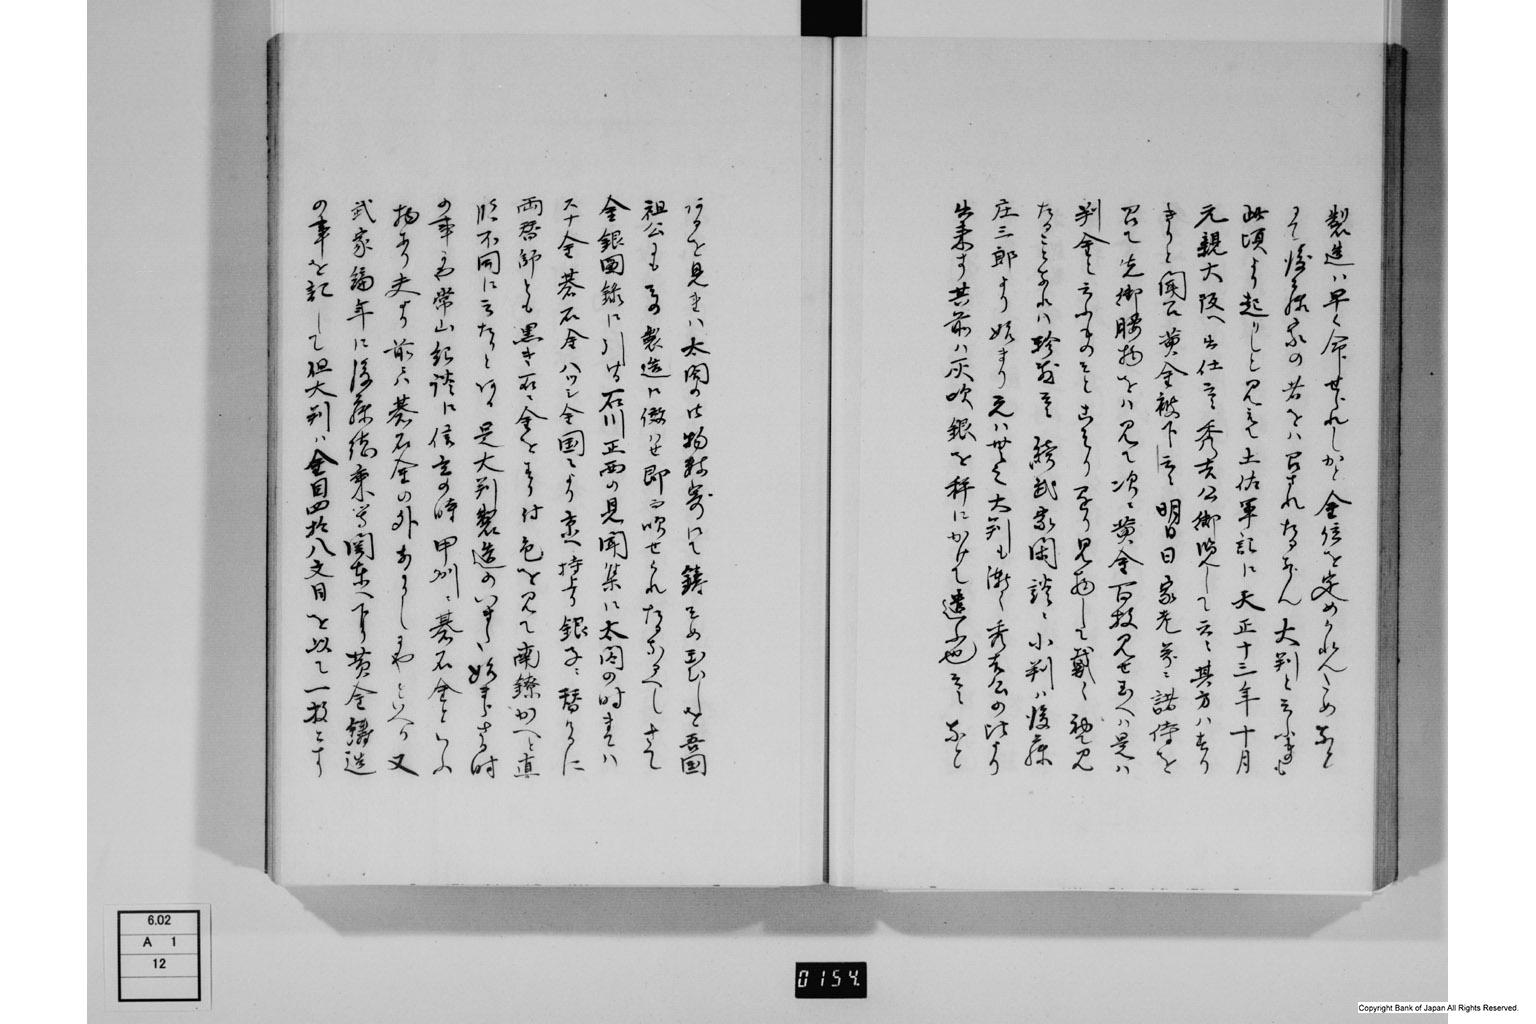 製造は早く命せられしかと金位を定められんため
後藤家の者をは召されたるならん大判と云事も
此頃より起りしと見えて土佐軍記に天正十三年十月
元親大坂へ出仕云々秀吉公御悦して云々其方は
と聞召黄金被下云々明日家老並に諸侍を
召て先御腰物をは見て次に黄金百枚見せ玉へは是は
判金と云ものそと 見物して戴く
たることあれは珍 云々 続武家閑談に小判は後藤
庄三郎より始まり元は 大判も漸く秀吉公の比より
出来す其前は灰吹銀を秤にかけて遣ふ也云々
を見れは太閤の比物数寄にて鋳そめ玉ひしを吾国
祖公も其製造に倣はせ即 吹せられたるなるへしさて
金銀図録に引ける石川正西の見聞集に太閤の時まては
スナ金碁石金ハツシ金国より京へ持上り銀子に替るに
両替師とも黒き石に金をすり付色を見て南鐐かへと直
段不同に云たりとある是大判製造のいまた始まらさる時
の事 常山紀談に信玄の時甲州に碁石金といふ
物あり夫より前は碁石金の外ありしまやといへり又
武家編年に後藤徳乗 関東へ下り黄金鋳造
の事を記して但大判は金目四拾八文目を以て一枚とす
6.02
A 1
12
0154.
Copyright Bank of Japan All Rights Reserved.